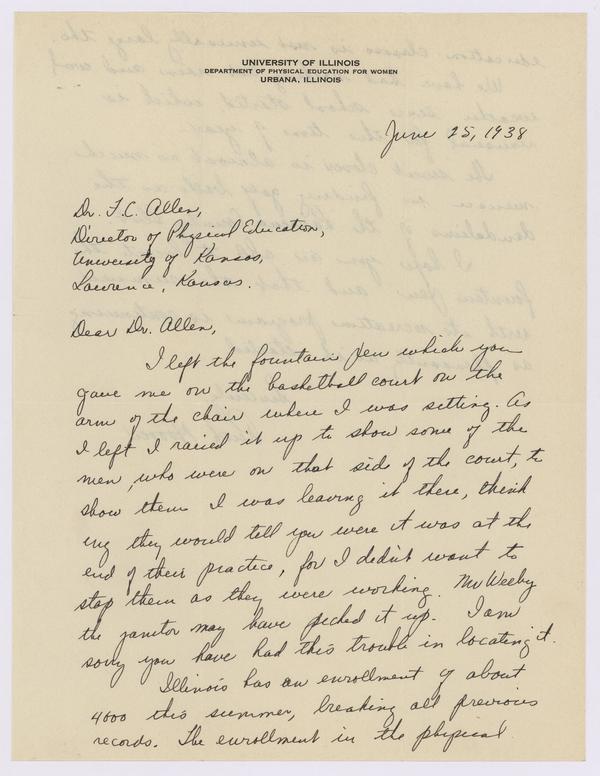 UNIVERSITY OF ILLINOIS
DEPARTMENT OF PHYSICAL EDUCATION FOR WOMEN
URBANA, ILLINOIS
June 25, 1938
Dr. F.C. Allen,
Director of Physical Education,
University of Kansas,
Lawrence, Kansas.
Dear Dr. Allen,
I left the fountain pen which you
gave me on the basketball court on the
arm of the chair where I was setting. As
I left I raised it up to show some of the
men, who were on that side of the court, to
show them I was leaving it there, think
ing they would tell you were it was at the
end of their practice, for I didn't want to
stop them as they were working. Mr Weeby
the janitor may have picked it up. I am
sorry you have had this trouble in locating it.
Illinois has an enrollment of about
4000 this summer, breaking all previous
records. The enrollment in the physical